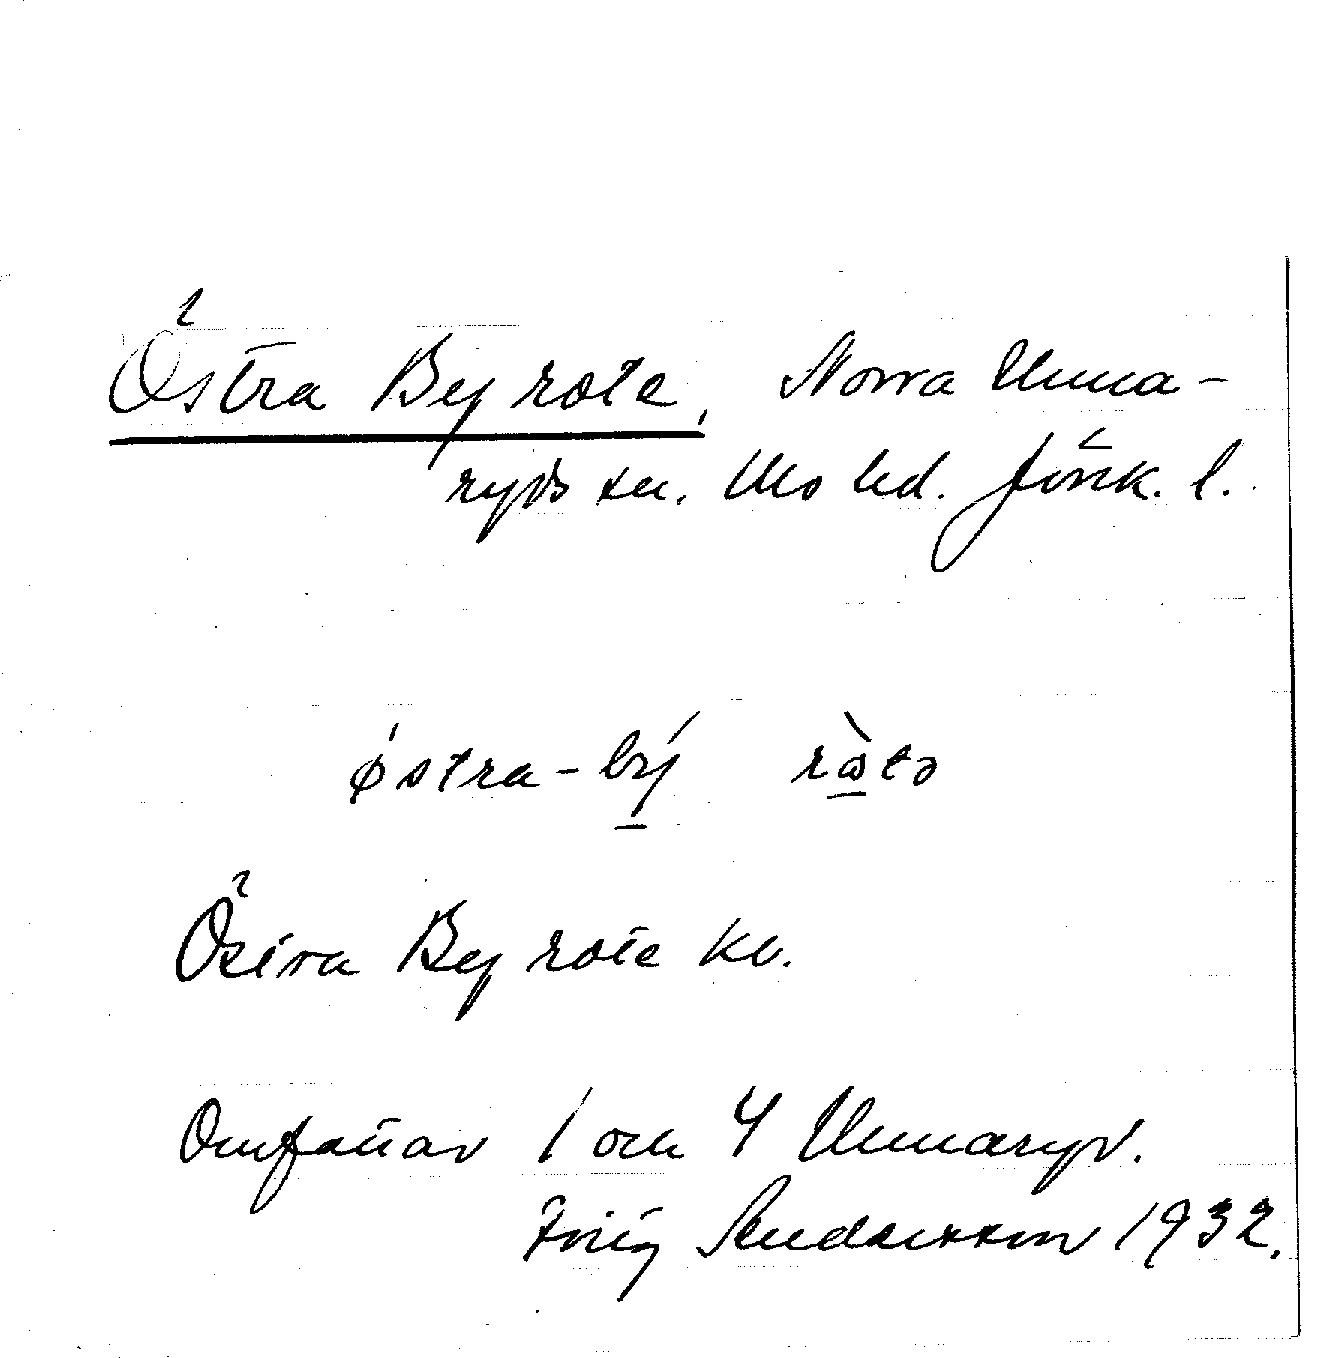 Östra By rote, Norra Unna-
ryds sn. Mo hd. Jönk. l.
ǿstra-bý̱ rɷ̱̀tə
Östra By rote kb.
Omfattar 1 och 4 Unnaryd.
Stig Andersson 1932.